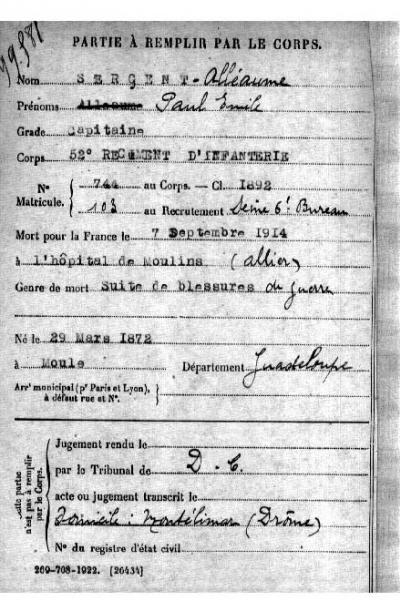 PARTIE À REMPLIR PAR LE CORPS.
Nom SERGENT-Alléaume
Prénoms Alleaume Paul Emile
Grade Capitaine
Corps 52° REGIMENT D'INFANTERIE
N° Matricule. 744 au Corps. — Cl. 1892
103 au Recrutement Seine 6e Bureau
Mort pour la France le 7 Septembre 1914
à l'hôpital de Moulins (Allier)
Genre de mort Suite de blessures de guerre
Né le 29 Mars 1872
à Moule Département Guadeloupe
Arrt municipal (pr Paris et Lyon), à défaut rue et N°.
Cette partie n'est pas à remplir par le Corps.
Jugement rendu le
par le Tribunal de D. C.
acte ou jugement transcrit le
Domicile : Montélimar (Drôme)
N° du registre d'état civil
269-708-1922. [26434]